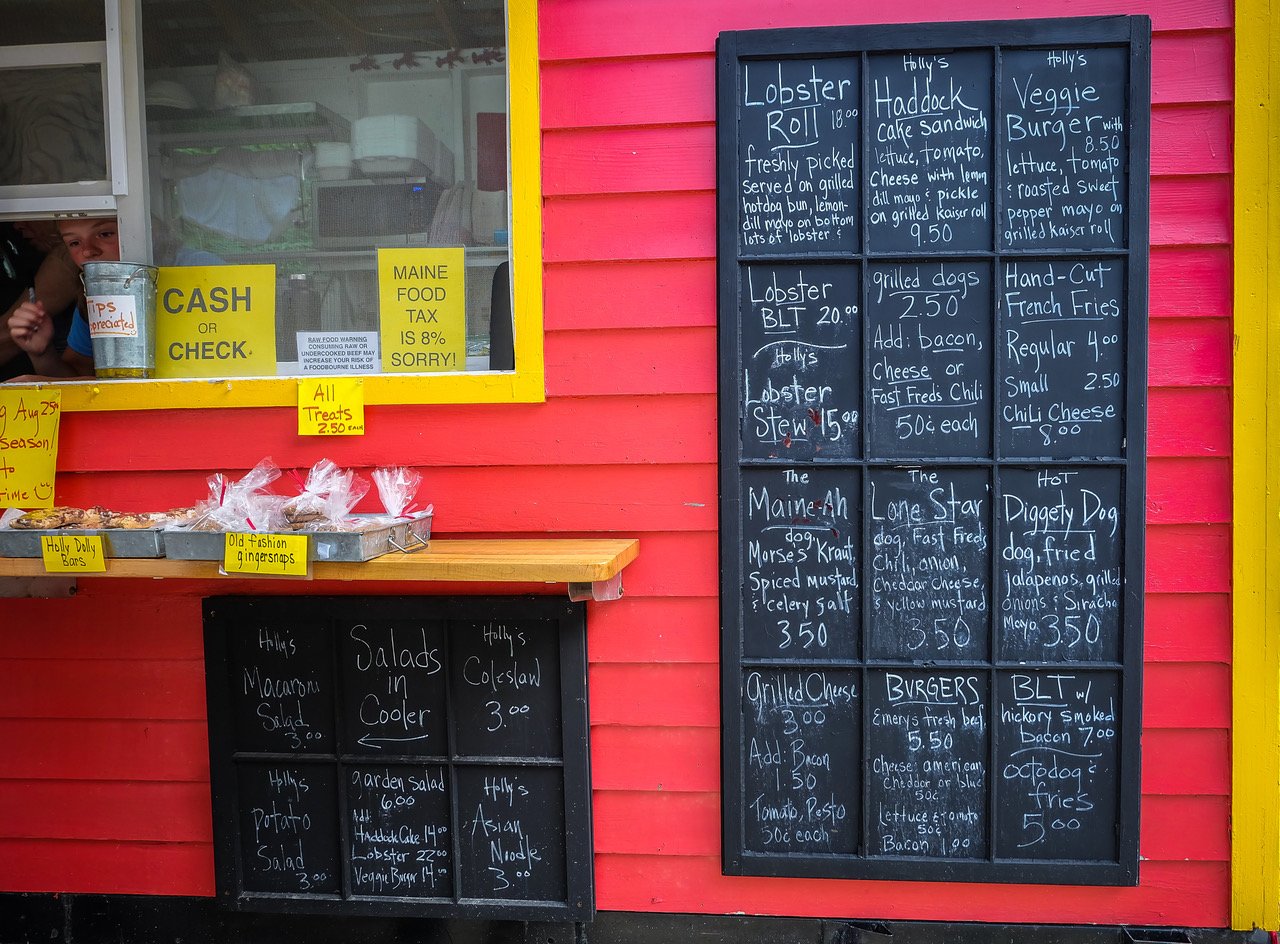 CASH
OR
CHECK.
MAINE
FOOD
TAX
IS 8%
SORRY!
RAW FOOD WARNING
CONSUMING RAW OR
UNDERCOOKED BEEF MAY
INCREASE YOUR RISK OF
A FOODBOURNE ILLNESS
Tips
preciated
All
Treats
2.50 EACH
g Aug 25th
season!
to
time
Holly Dolly
Bars
Old fashion
gingersnaps
Holly's
Macaroni
Salad
3.00
Salads
in
Cooler
Holly's
Coleslaw
3.00
Holly's
Potato
Salad
3.00
garden salad
6.00
Add:
Haddock Cake 14.00
Lobster 22.00
Veggie Burger 14.00
Holly's
Asian
Noodle
3.00
Lobster
Roll 18.00
freshly picked
served on grilled
hotdog bun, lemon-
dill mayo on bottom
lots of lobster!
Holly's
Haddock
cake sandwich
lettuce, tomato,
Cheese with lemon
dill mayo & pickle
on grilled kaiser roll
9.50
Holly's
Veggie
Burger with
8.50
lettuce, tomato
& roasted sweet
pepper mayo on
grilled kaiser roll
Lobster
BLT 20.00
Holly's
Lobster
Stew 15.00
grilled dogs
2.50
Add: bacon,
Cheese or
Fast Freds Chili
50¢ each
Hand-Cut
French Fries
Regular 4.00
Small 2.50
Chili Cheese
8.00
The
Maine-Ah
dog,
Morse's Kraut,
Spiced mustard,
& celery salt
3.50
The
Lone Star
dog, Fast Freds
Chili, onion,
Cheddar cheese,
& yellow mustard
3.50
HoT
Diggety Dog
dog, fried
jalapenos, grilled
onions & Siracha
Mayo 3.50
Grilled Cheese
3.00
Add: Bacon
1.50
Tomato, Pesto
50¢ each
BURGERS
Emery's fresh beef
5.50
Cheese american,
cheddar or blue
50¢
Lettuce & tomato
50¢
Bacon 1.00
BLT w/
hickory smoked
bacon 7.00
octodog &
fries
5.00